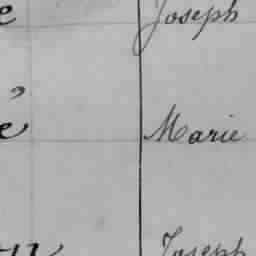 Joseph
Marie
Joseph